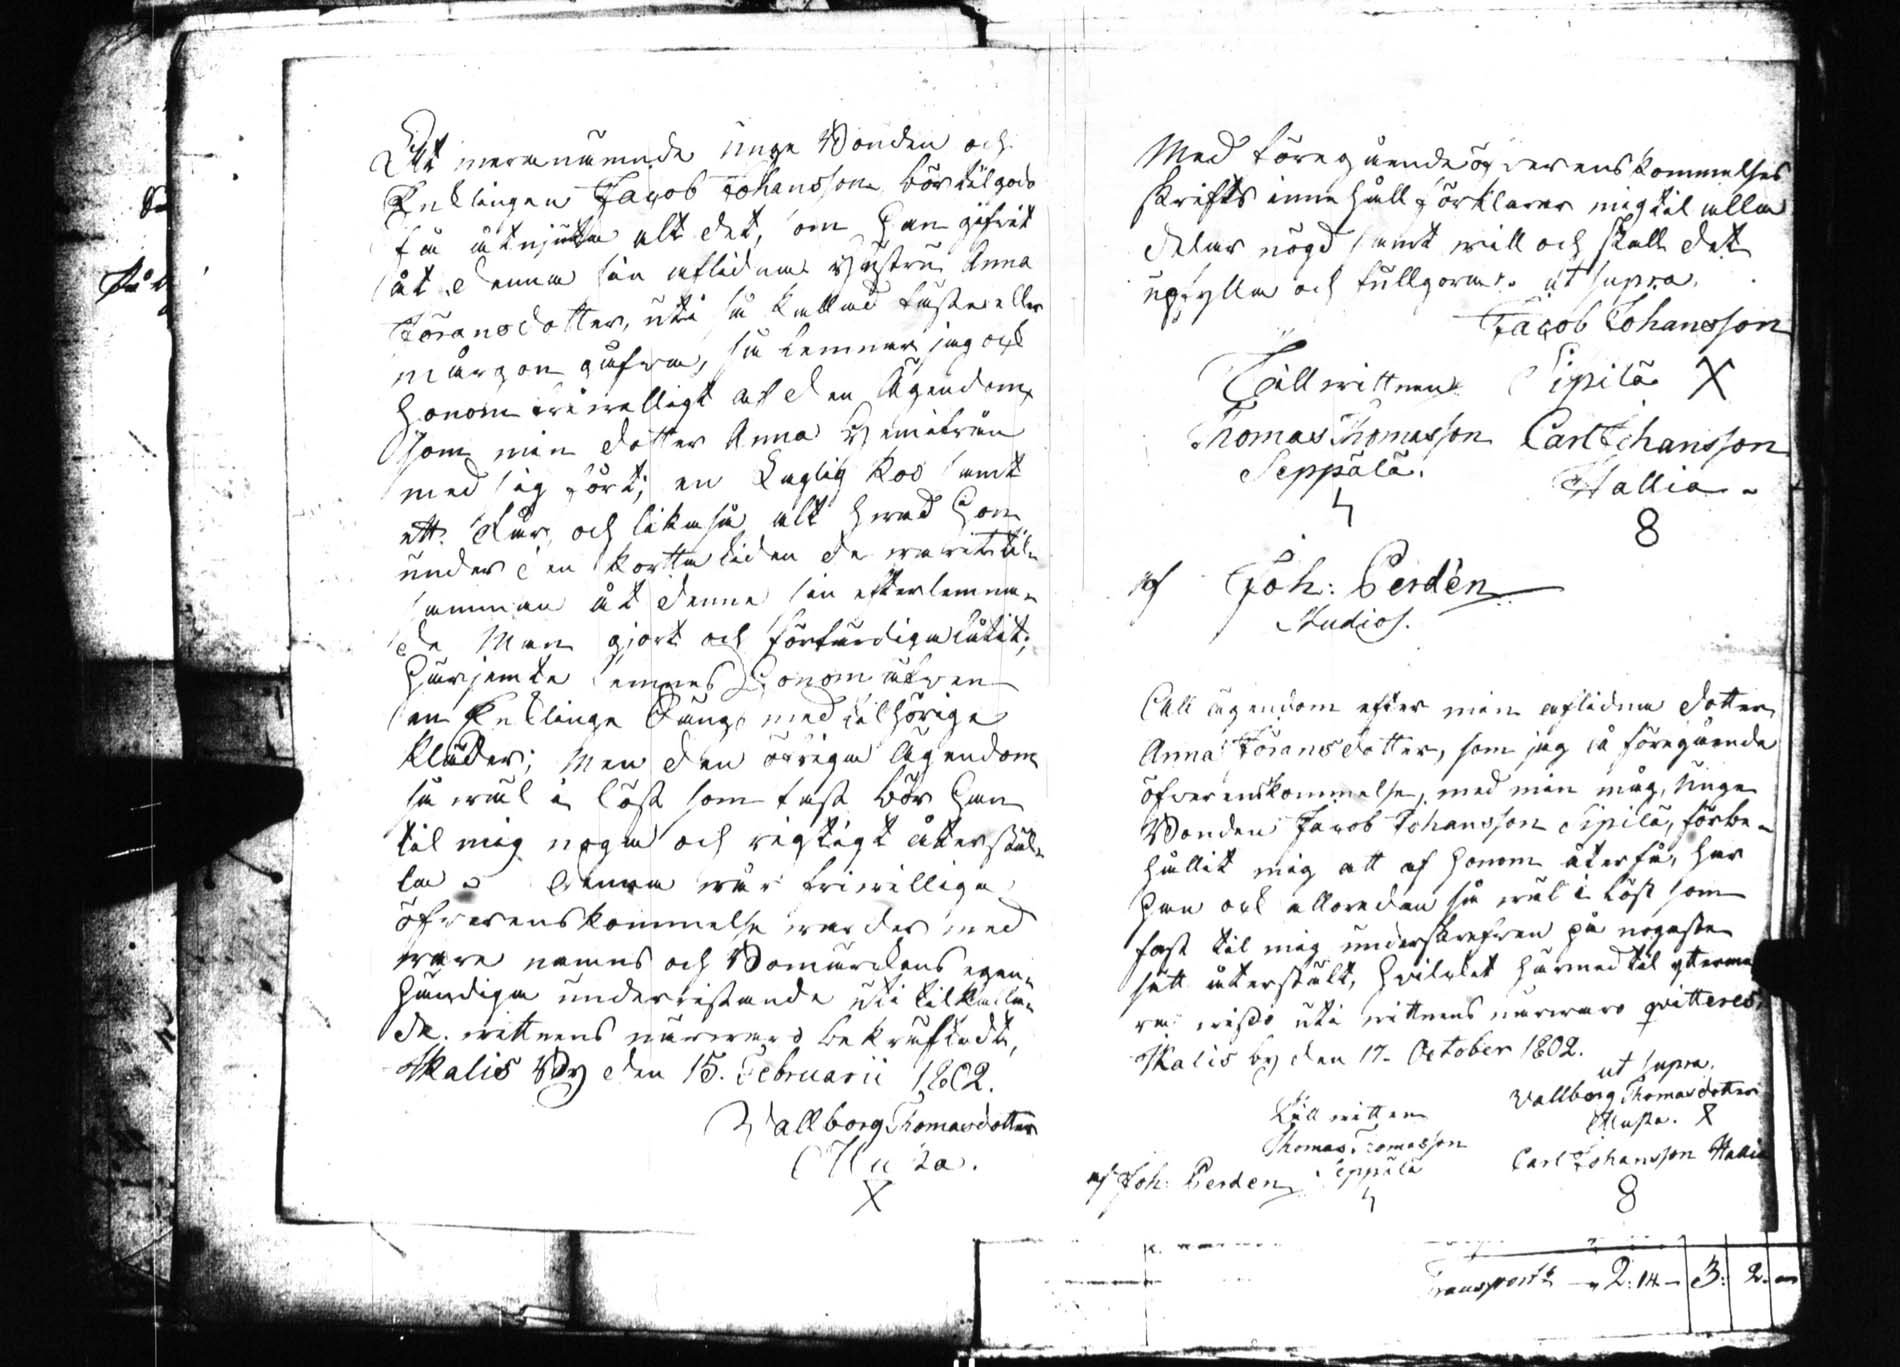 Att meranämnde unge Bonden och
Enklingen Jacob Johansson bör tilgodo
få åtnjuta alt det, som han gifvit
åt denna sin aflidna Hustru Anna
Jöransdotter, uti så kallad fäste eller
mårgon gåfva, så lemnar jag ock
honom friwilligt af den Ägendom
som min dotter Anna hemifrån
med sig fört; en Duglig Koo samt
ett Får, och likaså alt hwad hon
under den kortta tiden de warit til-
samman åt denne sin efterlemna-
de Man gjort och förfärdiga låtit;
härjemte lemnas honom äfwen
en Enklinge Säng med tilhörige
Kläder; Men den öfriga Ägendom
så wäl i löst som fast bör han
til mig noga och rigtigt återstäl-
la. Denna wår friwilliga
öfverenskommelse warder med
wåra namns och Bomärckens egen-
händiga underristande uti tilkalla-
de wittnens närwaro bekräftadt,
Skalis By den 15. Februarii 1802.
Wallborg Thomasdotter
X
Med föregående öfverenskommelses
skrifts innehåll förklarar mig til alla
delar nögd samt will och skall det
upfylla och fullgöra. ut supra.
Jacob Johansson
Till wittnen Sipilä X
Thomas Thomasson Carl Johansson
Seppälä. Hallia
4 8
af Joh: Perdén
Studios.
All ägendom efter min aflidna dotter
Anna Jöransdotter, som jag i föregående
öfverenskommelse, med min måg, Unge
Bonden Jacob Johansson Sipilä, förbe-
hållit mig att af honom återfå, har
han ock allaredan så wäl i löst som
fast til mig underskrefven på nogaste
sätt återstält, hvilcket härmed til ytterme
ra wisso uti wittnens närwaro qvitteres,
Skalis by den 17. October 1802.
ut supra.
Wallborg Thomasdotter
Till wittnen X
Thomas Thomasson Carl Johansson Hallia
af Joh: Perden Seppälä
4 8
Transport 2:14 3: 2.